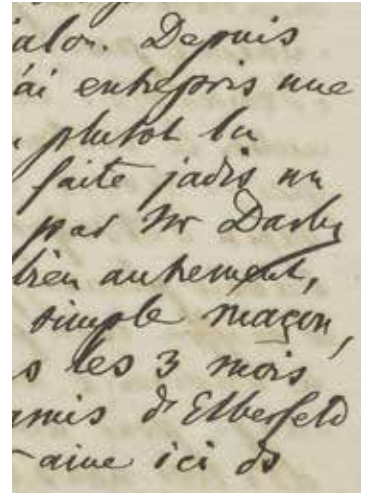 alor. Depuis
'ai entrepris une
plutôt lu
faite jadis un
par Mr Darby
bien autrement,
simple maçon,
s les 3 mois
amis d'Elberfeld
aine ici ds